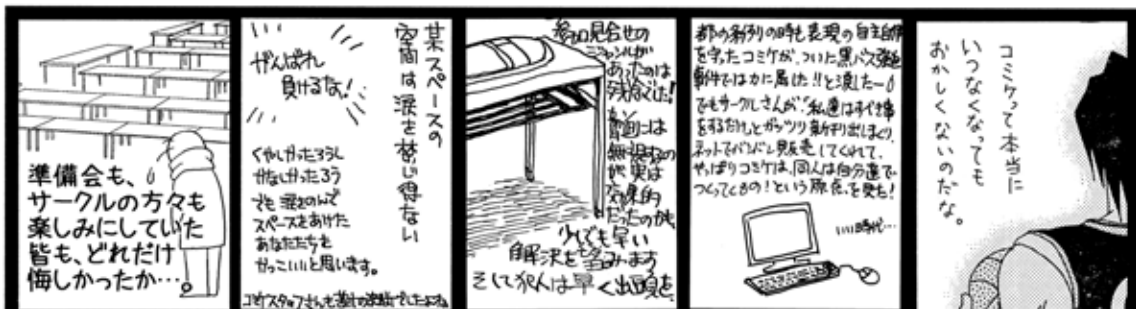 準備会も、
サークルの方々も
楽しみにしていた
皆も、どれだけ
悔しかったか…。
某スペースの
空間は涙を禁じ得ない
がんばれ
負けるな!
くやしかったろうし
かなしかったろう
でも 涙をのんで
スペースをあけた
あなたたちを
かっこいいと思います。
参加見合せの
ジャンルが
あったのは
残念でした!
無視するの
が実は
効果的
だったのかも
少しでも早い
解決を望みます
そして犯人は早く出頭を
都の条例の時も表現の自主自由
を守ったコミケが、ついに黒バス強迫
事件では力に屈した!!と涙したー
でもサークルさんが「私達はすべき事
をするだけ」とガッツリ新刊出しまくり、
ネットでバンバン販売してくれて、
やっぱりコミケは、同人は自分達で
つくってくもの!という原点を見た!
いい時代…
コミケって本当に
いつなくなっても
おかしくないのだな。